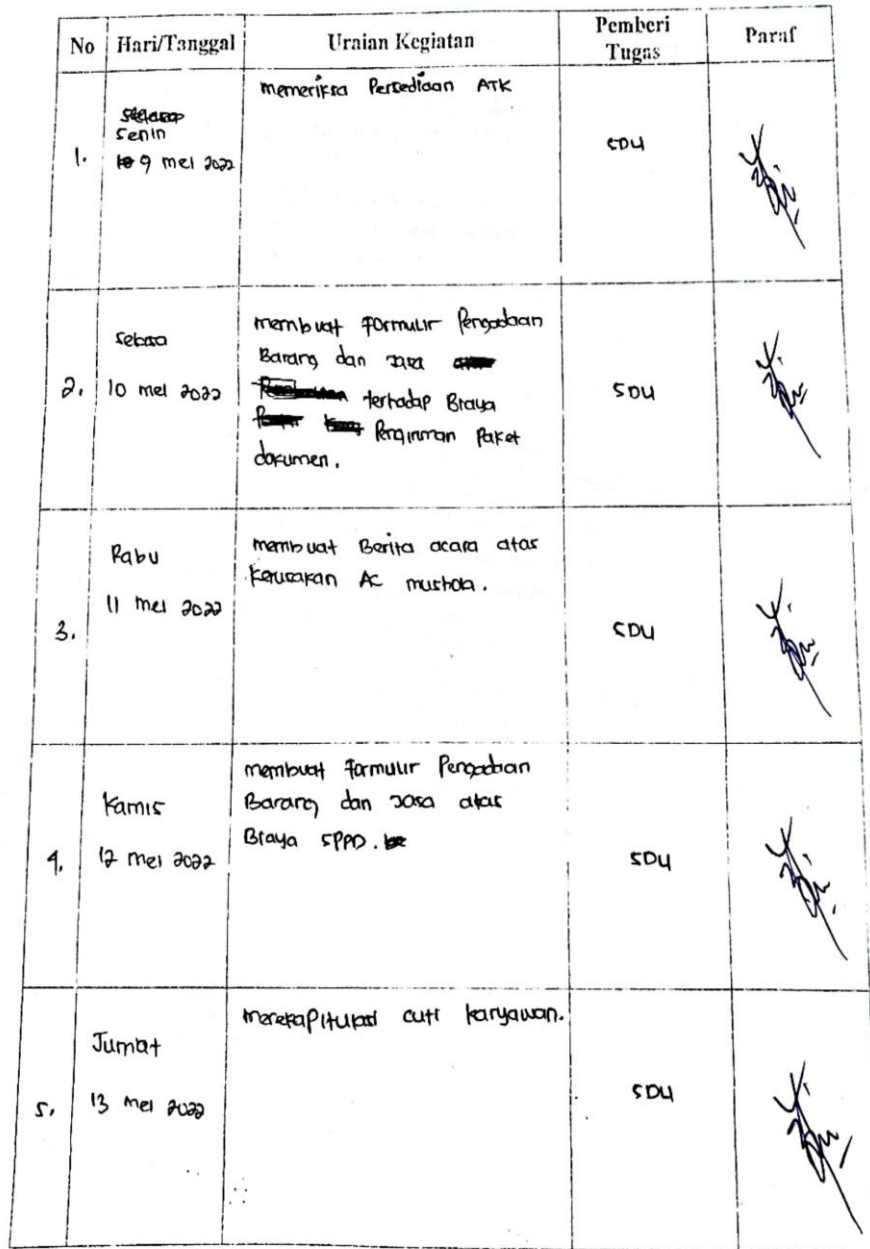 No Hari/Tanggal Uraian Kegiatan Pemberi Tugas Paraf
1.
Senin
9 mei 2022
memeriksa Persediaan ATK
SDU
2.
Selasa
10 mei 2022
membuat Formulir Pengadaan
Barang dan Jasa
terhadap Biaya
Pengiriman Paket
dokumen.
SDU
3.
Rabu
11 mei 2022
membuat Berita acara atas
kerusakan AC mushola.
SDU
4.
Kamis
12 mei 2022
membuat Formulir Pengadaan
Barang dan Jasa atas
Biaya SPPD.
SDU
5.
Jumat
13 mei 2022
merekapitulasi cuti karyawan.
SDU